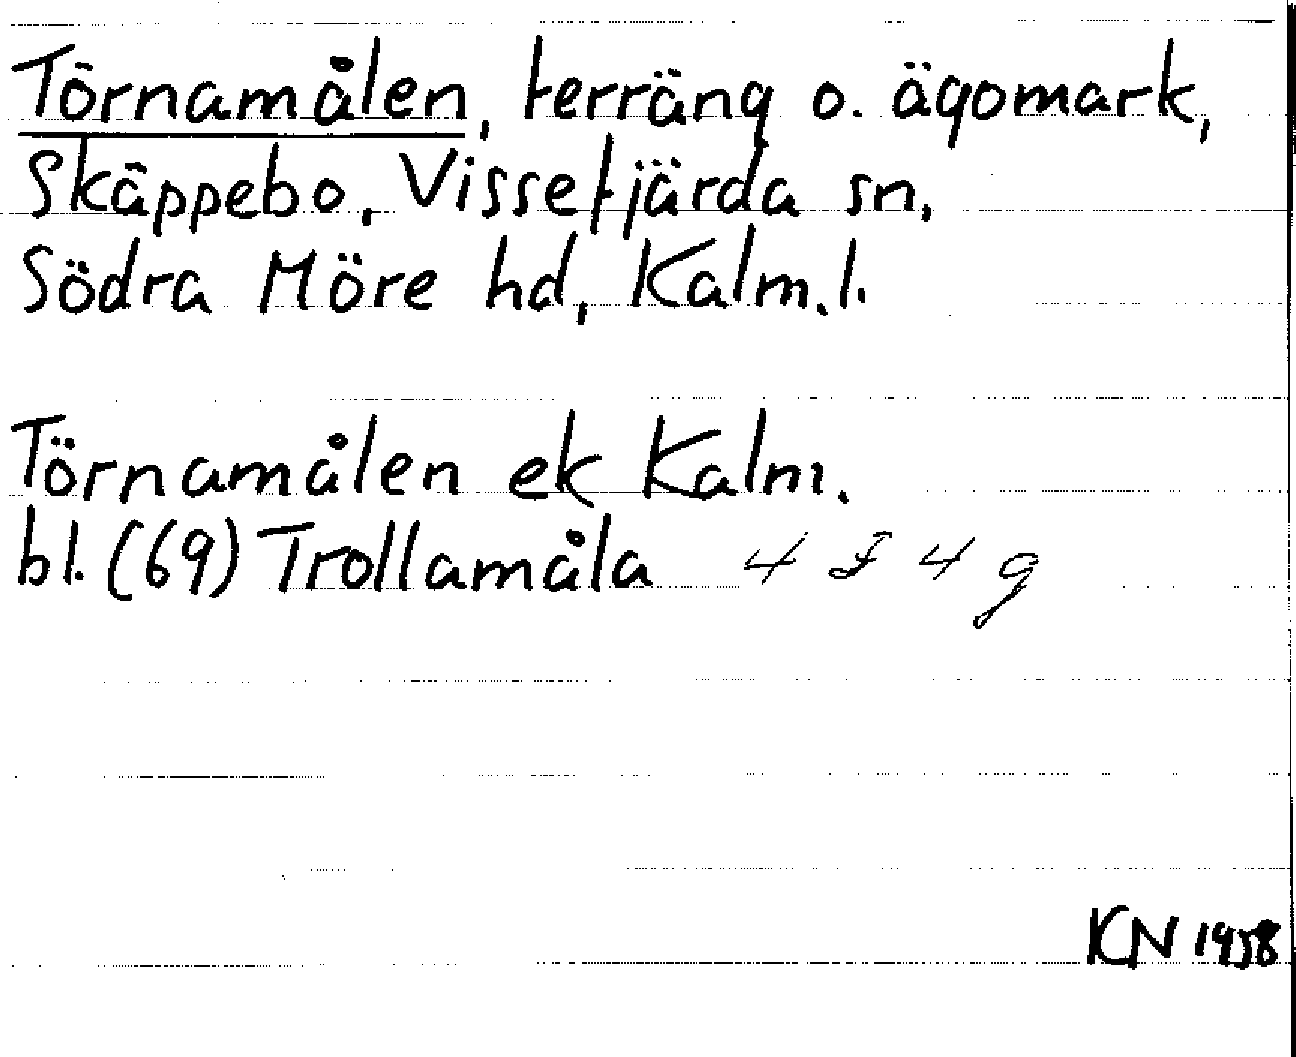 Törnamålen, terräng o. ägomark,
Skäppebo, Vissefjärda sn,
Södra Möre hd, Kalm.l.
Törnamålen ek Kalm.
bl. (69) Trollamåla 4 F 4 g
KN 1958